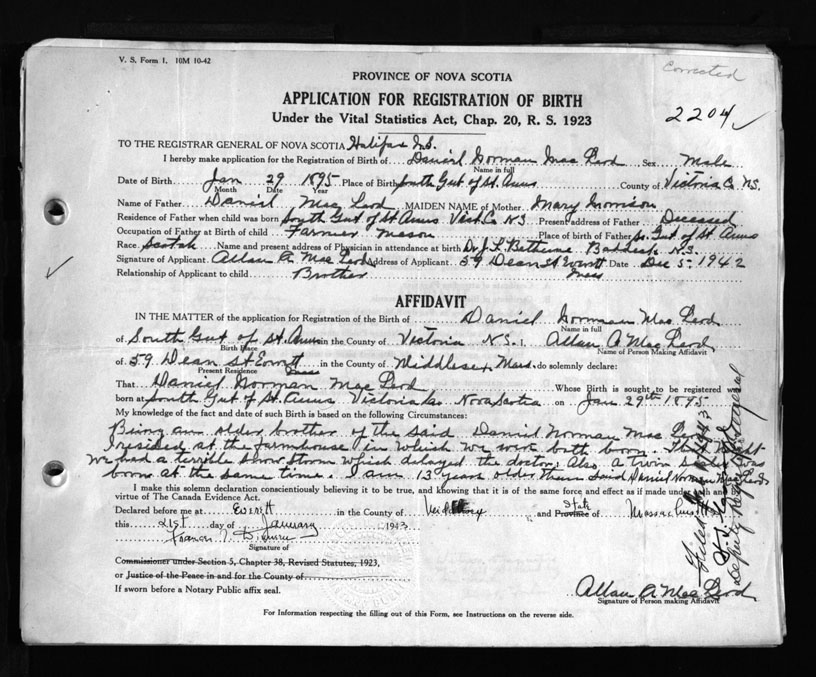 V. S. Form 1. 10M 10-42
Corrected
PROVINCE OF NOVA SCOTIA
APPLICATION FOR REGISTRATION OF BIRTH
2204
Under the Vital Statistics Act, Chap. 20, R. S. 1923
TO THE REGISTRAR GENERAL OF NOVA SCOTIA Halifax N.S.
I hereby make application for the Registration of Birth of Daniel Norman Mac Leod Sex Male
Name in full
Date of Birth Jan 29 1895 Place of Birth South Gut of St. Anns County of Victoria Co N.S.
Month Day Year
Name of Father Daniel Mac Leod MAIDEN NAME of Mother Mary Morrison
Residence of Father when child was born South Gut of St Anns Vict. Co N.S Present address of Father Deceased
Occupation of Father at Birth of child Farmer Mason Place of birth of Father So. Gut of St. Anns
Race Scotch Name and present address of Physician in attendance at birth Dr. J. L. Bethune Baddeck N.S.
Signature of Applicant Allan A. Mac Leod Address of Applicant 59 Dean St Everett Date Dec 5-1942
Relationship of Applicant to child Brother Mass
AFFIDAVIT
IN THE MATTER of the application for Registration of the Birth of Daniel Norman Mac Leod
Name in full
of South Gut of St. Anns in the County of Victoria N.S. I, Allan A Mac Leod,
Birth Place Name of Person Making Affidavit
of 59 Dean St Everett in the County of Middlesex, Mass. do solemnly declare:
Present Residence Mass
That Daniel Norman Mac Leod Whose Birth is sought to be registered was
born at South Gut of St. Anns Victoria Co Nova Scotia on Jan 29th 1895
My knowledge of the fact and date of such Birth is based on the following Circumstances:
Being an older brother of the said Daniel Norman Mac Leod
I resided at the farmhouse in which we were both born. That night
we had a terrible snow storm which delayed the doctor. Also a twin was
born at the same time. I am 13 years older than said Daniel Norman MacLeod
I make this solemn declaration conscientiously believing it to be true, and knowing that it is of the same force and effect as if made under oath and by
virtue of The Canada Evidence Act.
Declared before me at Everett in the County of Middlesex and State Province of Massachusetts
this 21st day of January 1943
Signature of
Commissioner under Section 5, Chapter 38, Revised Statutes, 1923,
or Justice of the Peace in and for the County of
If sworn before a Notary Public affix seal.
Allan A Mac Leod
Signature of Person making Affidavit
For Information respecting the filling out of this Form, see Instructions on the reverse side.
Filed 1943
Deputy Registrar General